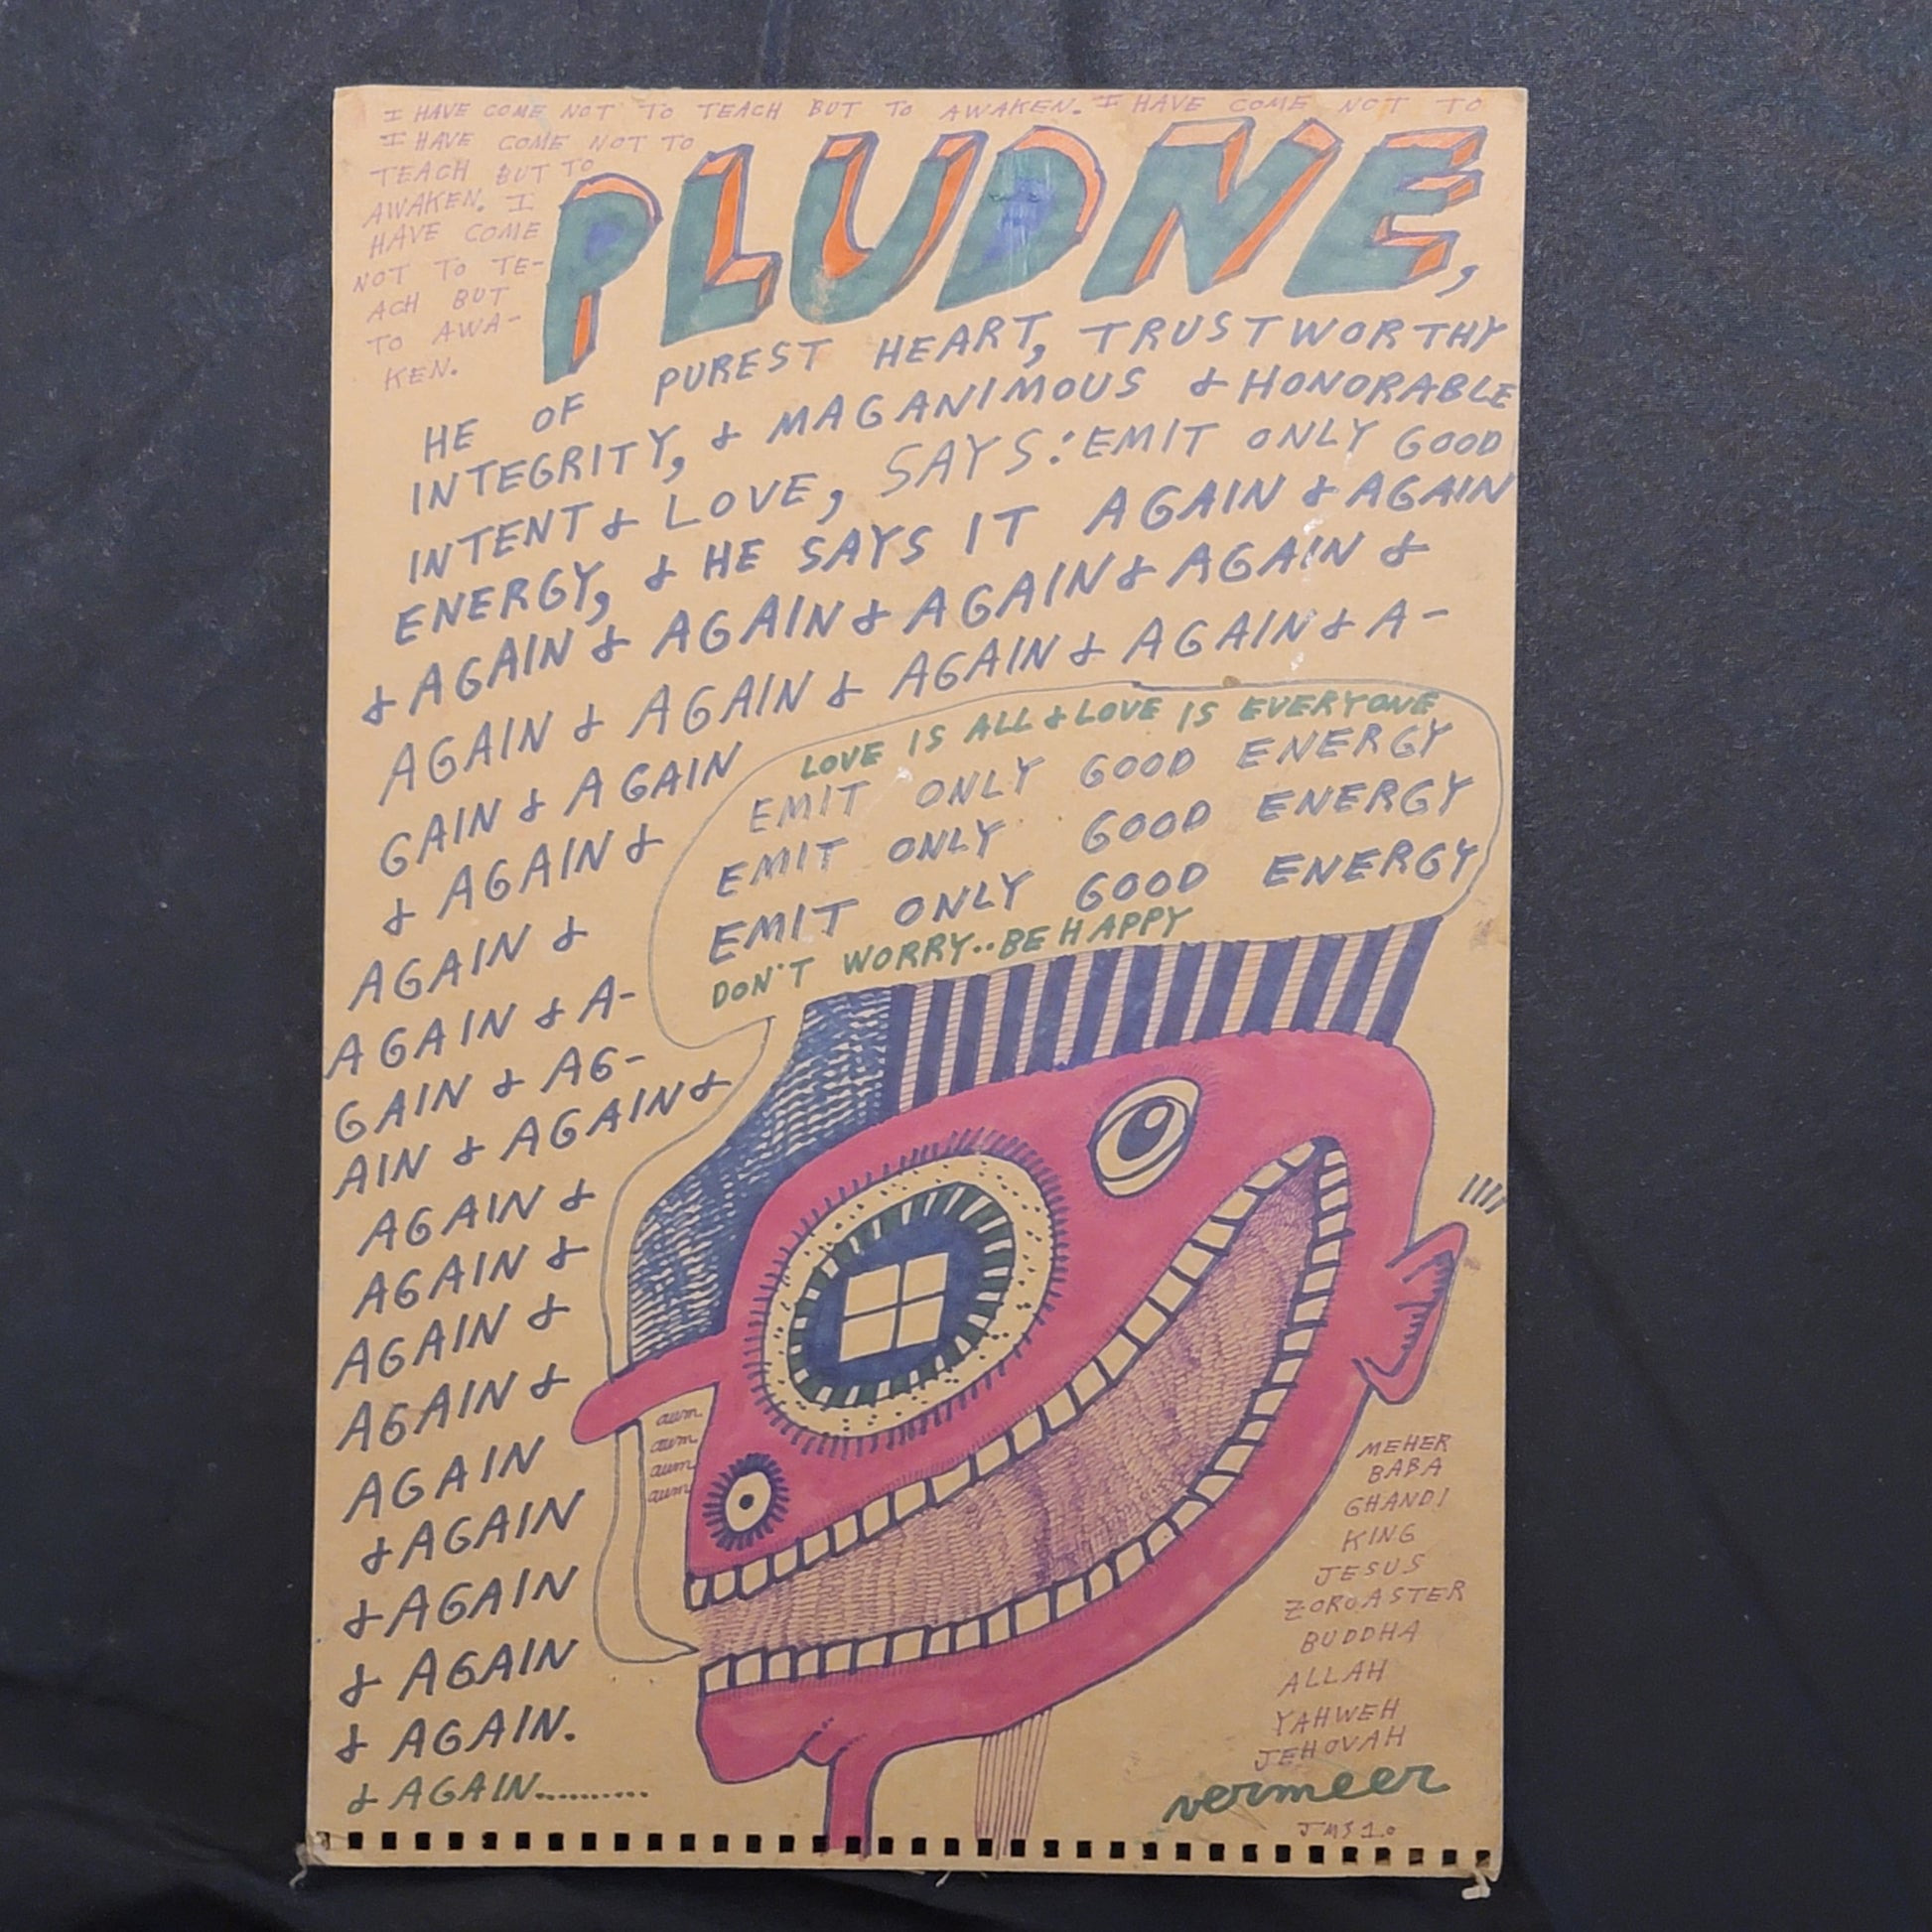 I HAVE COME NOT TO TEACH BUT TO AWAKEN. I HAVE COME NOT TO
I HAVE COME NOT TO
TEACH BUT TO
AWAKEN. I
HAVE COME
NOT TO TE-
ACH BUT
TO AWA-
KEN.
PLUDNE,
HE OF PUREST HEART, TRUSTWORTHY
INTEGRITY, & MAGANIMOUS & HONORABLE
INTENT & LOVE, SAYS: EMIT ONLY GOOD
ENERGY, & HE SAYS IT AGAIN & AGAIN
& AGAIN & AGAIN & AGAIN & AGAIN &
AGAIN & AGAIN & AGAIN & AGAIN & A-
GAIN & AGAIN
& AGAIN &
AGAIN &
AGAIN & A-
GAIN & AG-
AIN & AGAIN &
AGAIN &
AGAIN &
AGAIN &
AGAIN &
AGAIN
& AGAIN
& AGAIN
& AGAIN
& AGAIN.
& AGAIN..........
LOVE IS ALL & LOVE IS EVERYONE
EMIT ONLY GOOD ENERGY
EMIT ONLY GOOD ENERGY
EMIT ONLY GOOD ENERGY
DON'T WORRY..BE HAPPY
aum
aum
aum
aum
MEHER
BABA
GHANDI
KING
JESUS
ZOROASTER
BUDDHA
ALLAH
YAHWEH
JEHOVAH
vermeer